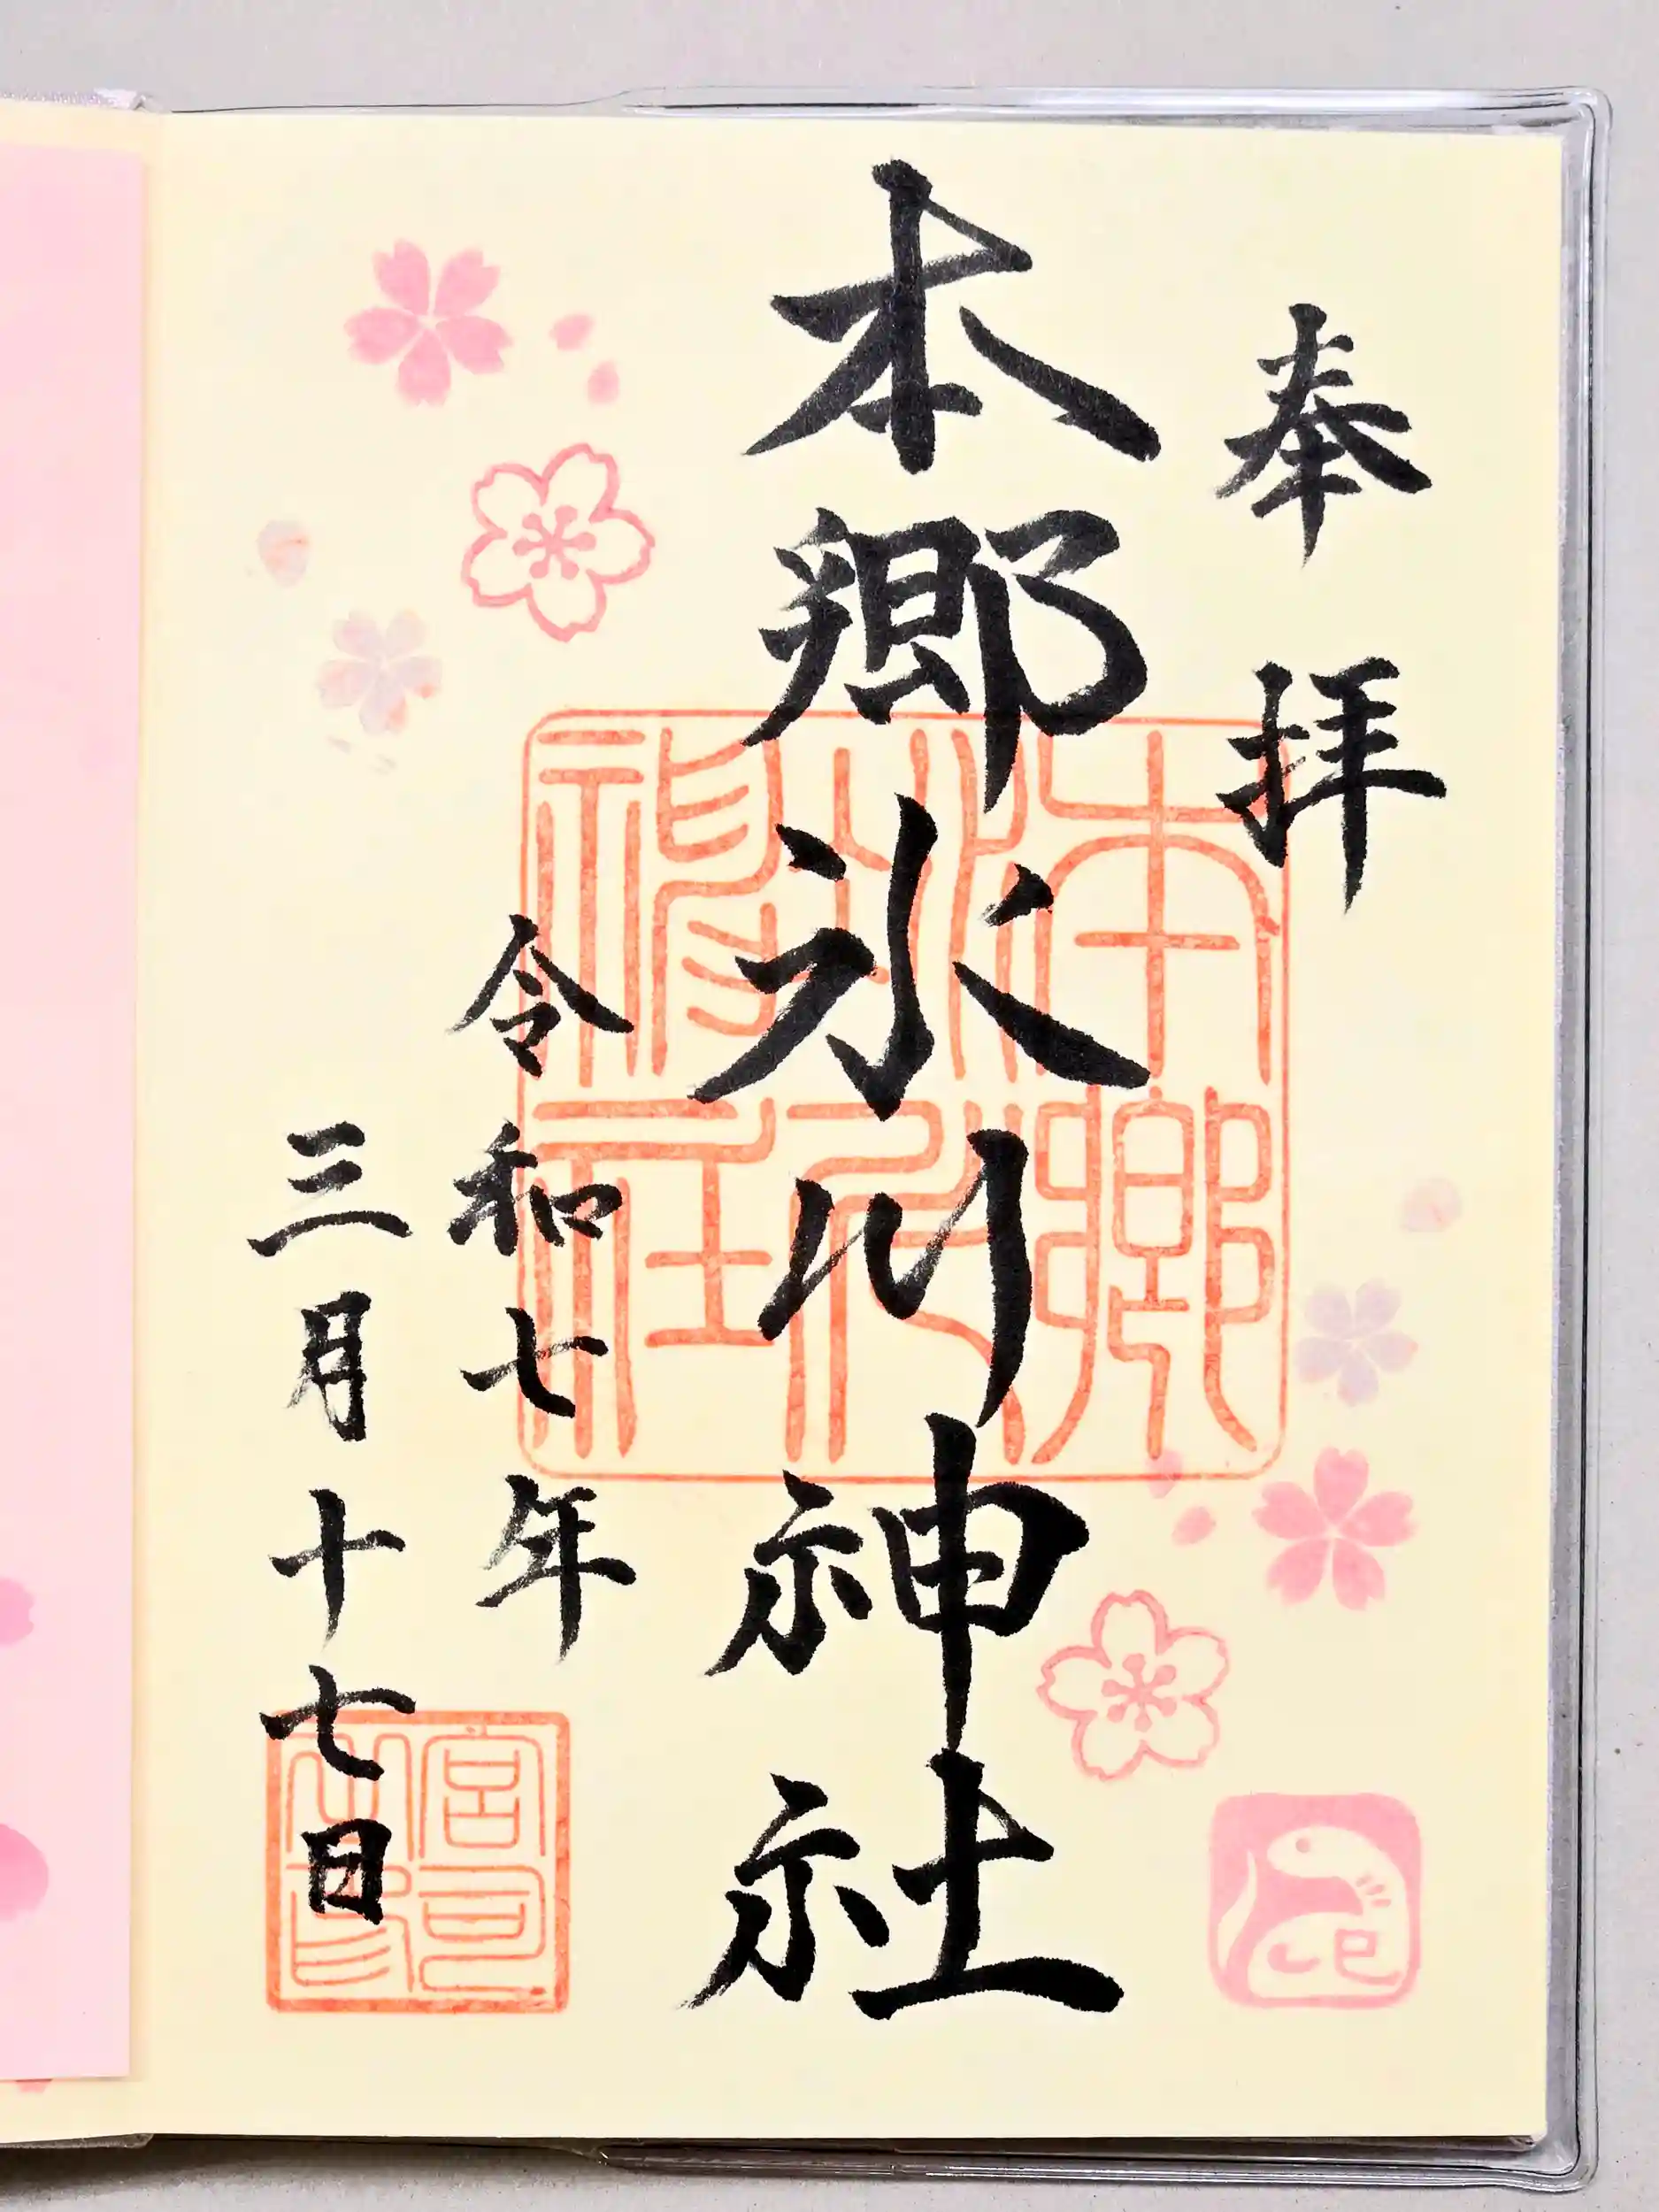 奉拝
本郷氷川神社
令和七年
三月十七日
本郷
氷川
神社
宮司
之印
巳